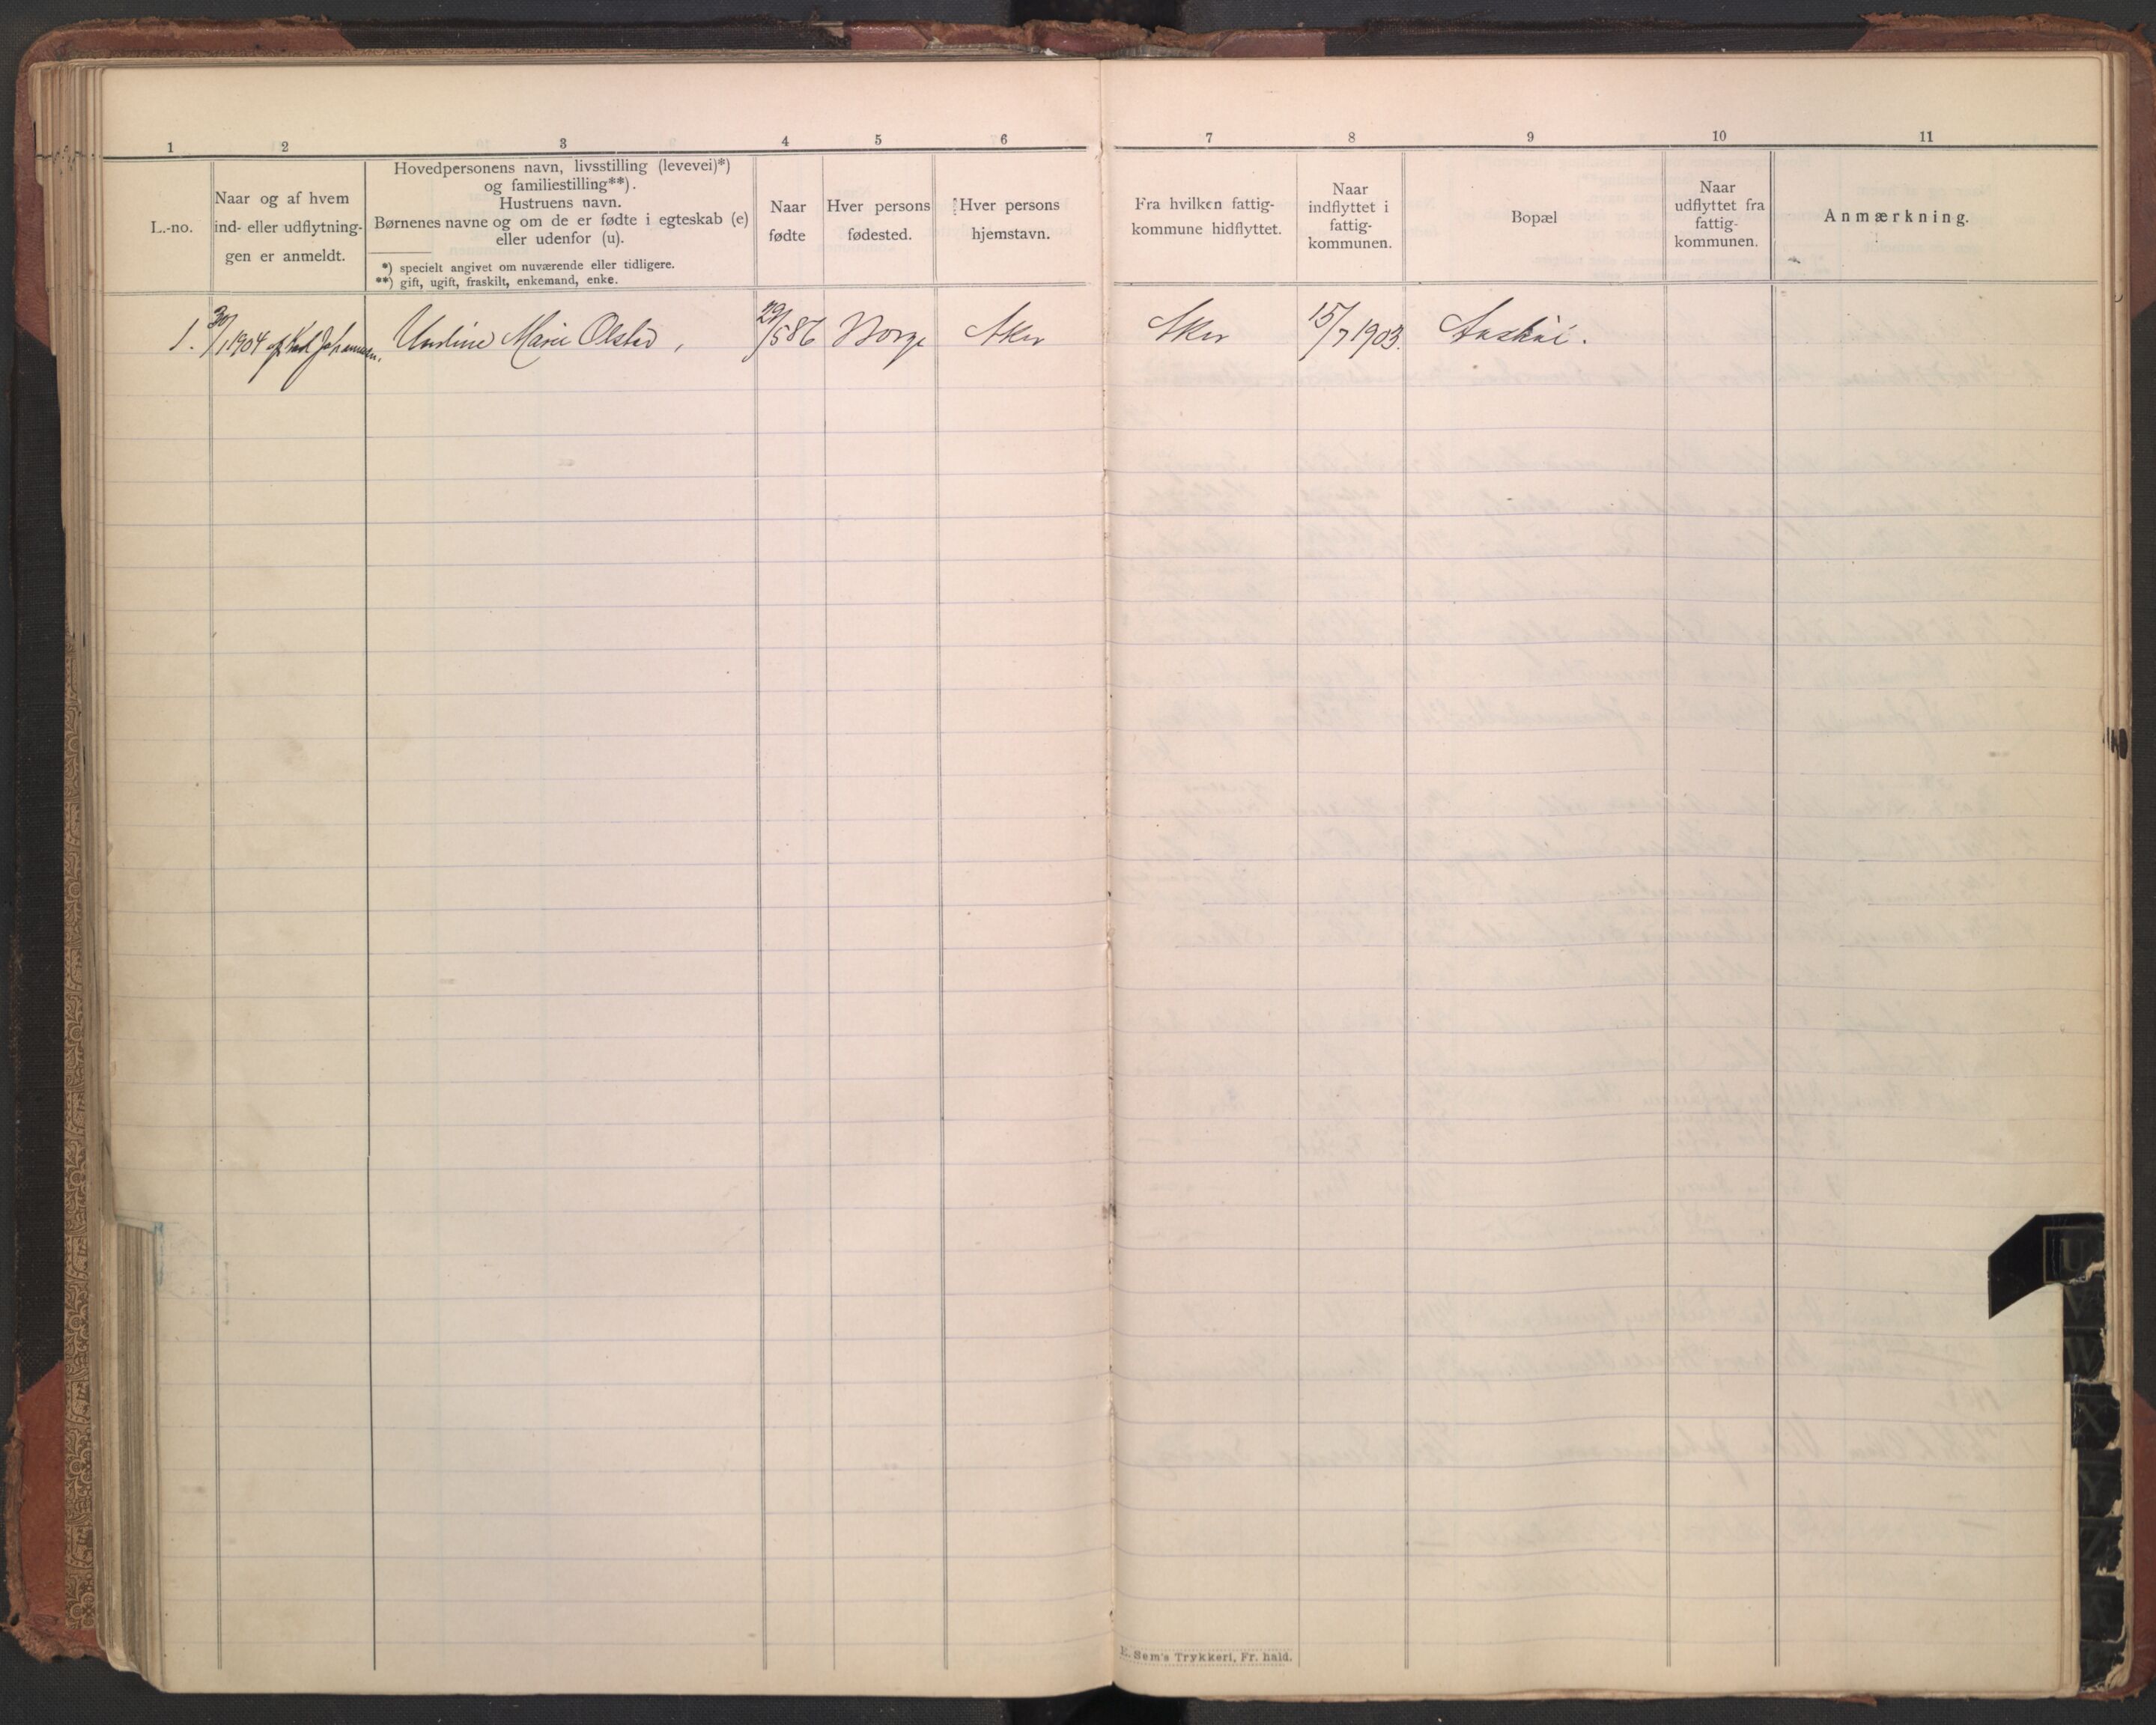 1 2 3 4 5 6 7 8 9 10 11
L.-no.
Naar og af hvem
ind- eller udflytnin-
gen er anmeldt.
Hovedpersonens navn, livsstilling (levevei)*)
og familiestilling**).
Hustruens navn.
Børnenes navne og om de er fødte i egteskab (e)
eller udenfor (u).
*) specielt angivet om nuværende eller tidligere.
**) gift, ugift, fraskilt, enkemand, enke.
Naar
fødte
Hver persons
fødested.
Hver persons
hjemstavn.
Fra hvilken fattig-
kommune hidflyttet.
Naar
indflyttet i
fattig-
kommunen.
Bopæl
Naar
udflyttet fra
fattig-
kommunen.
Anmærkning.
1. 30/1 1904 af Karl Johannesen. Undine Marie Olstad, 29/5 86 Norge Aker Aker 15/7 1903.
E. Sem's Trykkeri, Fr. hald.
U
X
Y